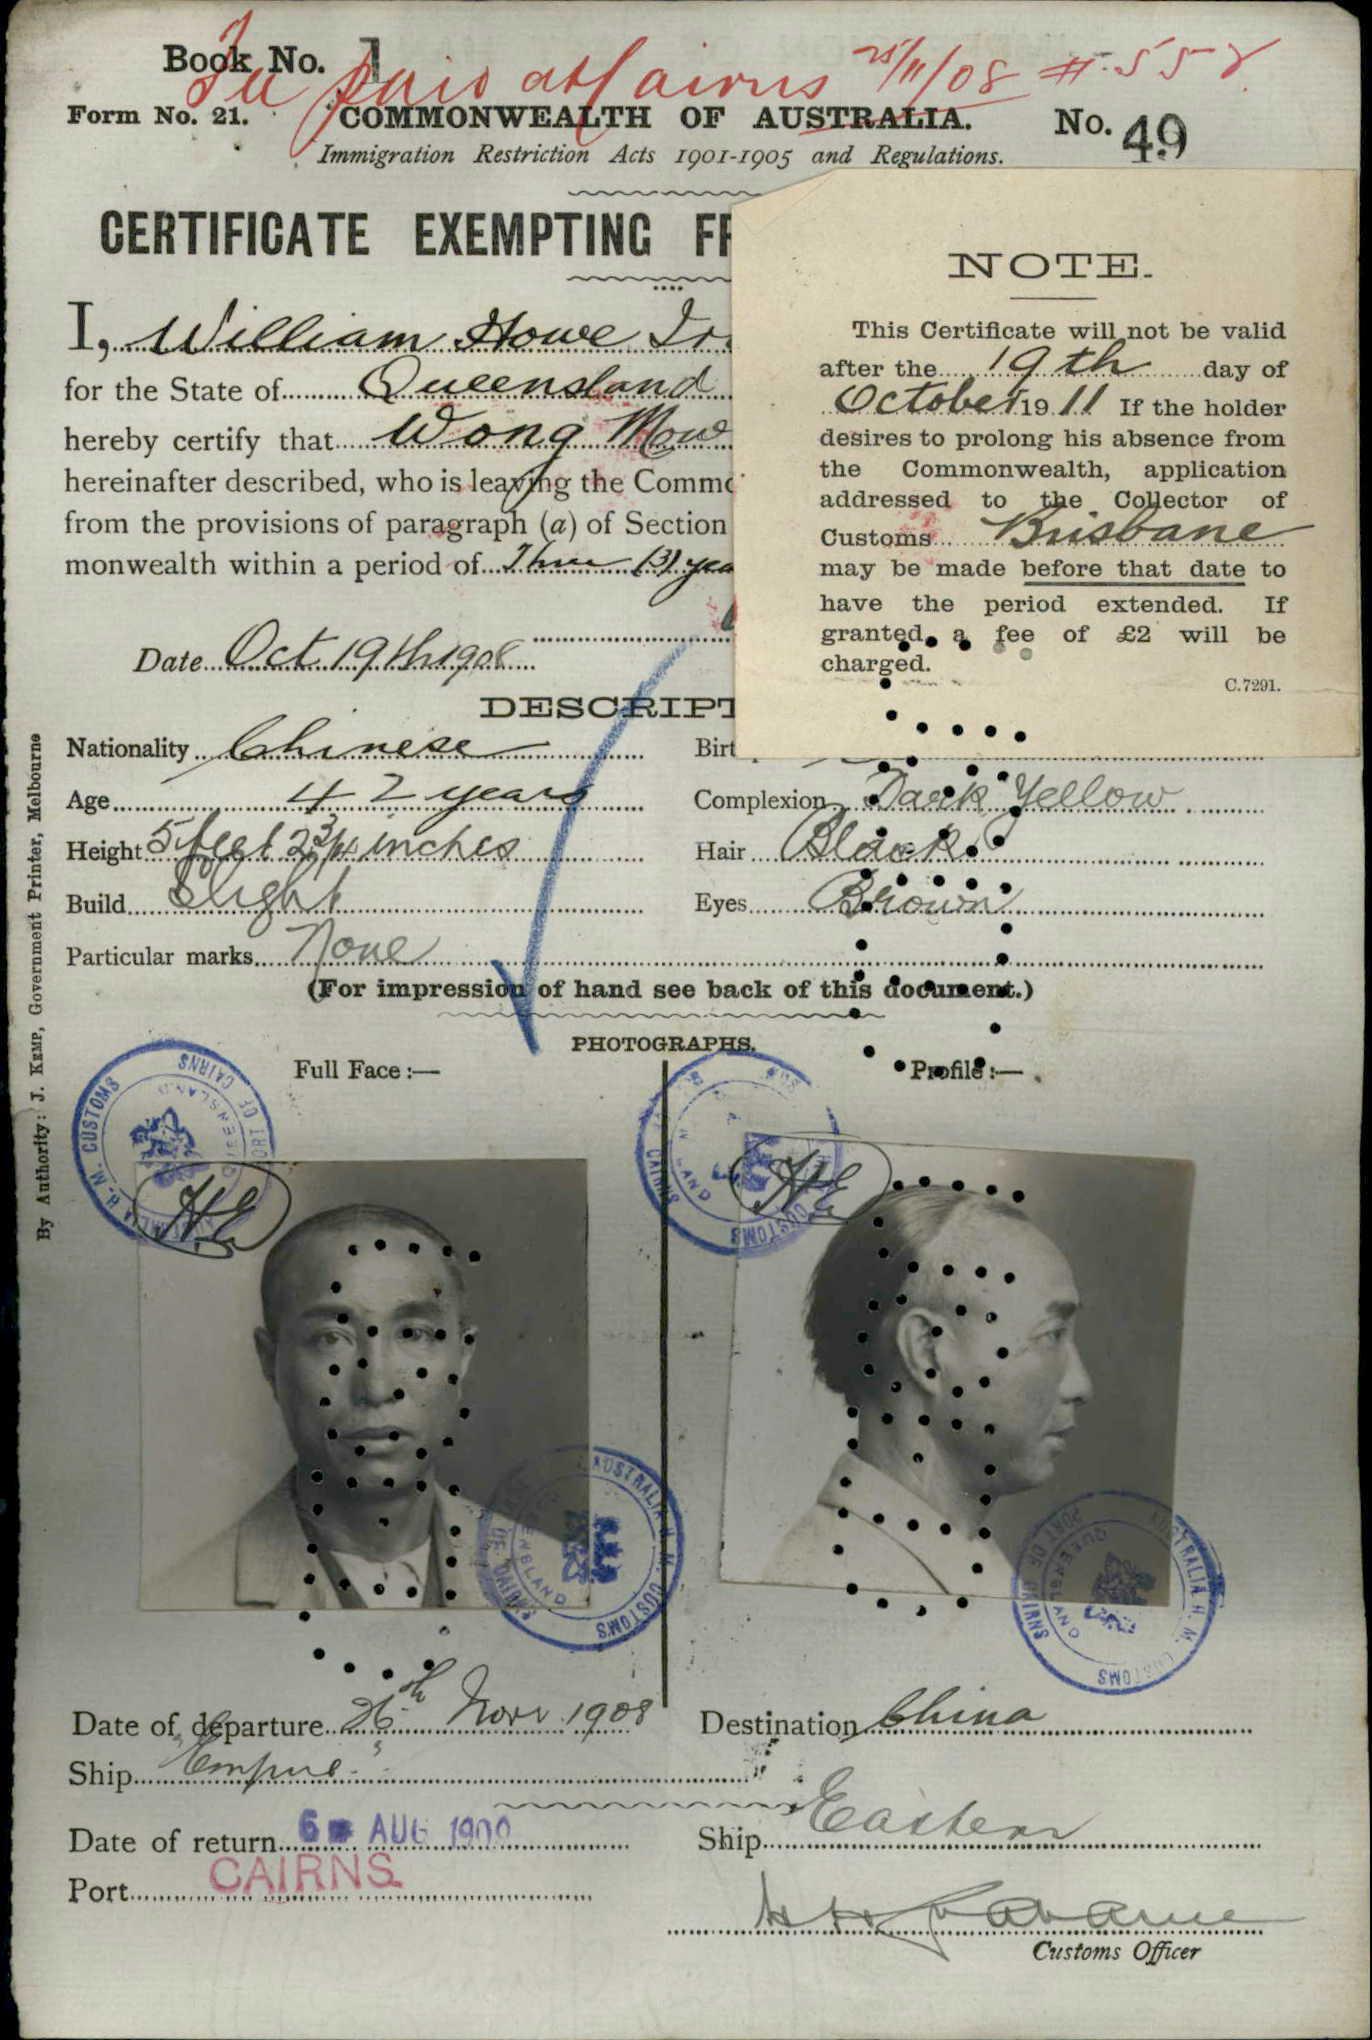 Book No. 1
Fee paid at Cairns 25/11/08 #558
Form No. 21. COMMONWEALTH OF AUSTRALIA. No. 49
Immigration Restriction Acts 1901-1905 and Regulations.
CERTIFICATE EXEMPTING
I, William Howe
for the State of Queensland
hereby certify that Wong Mow
hereinafter described, who is leaving the
from the provisions of paragraph (a) of Section
monwealth within a period of Three (3)
Date Oct 19th 1908
NOTE.
This Certificate will not be valid
after the 19th day of
October 1911 If the holder
desires to prolong his absence from
the Commonwealth, application
addressed to the Collector of
Customs Brisbane
may be made before that date to
have the period extended. If
granted, a fee of £2 will be
charged.
C.7291.
DESCRIPT
Nationality Chinese
Age 42 years Complexion Dark Yellow
Height 5 feet 2 3/4 inches Hair Black
Build Slight Eyes Brown
Particular marks None
(For impression of hand see back of this document.)
PHOTOGRAPHS.
Full Face :— Profile :—
AUSTRALIA H. M. CUSTOMS PORT OF CAIRNS QUEENSLAND
H.E
H.E
AUSTRALIA H. M. CUSTOMS PORT OF CAIRNS QUEENSLAND
AUSTRALIA H. M. CUSTOMS PORT OF CAIRNS QUEENSLAND
Date of departure 26th Novr 1908 Destination China
Ship "Empire"
Date of return 6 AUG 1909 Ship Eastern
Port CAIRNS.
Customs Officer
By Authority: J. KEMP, Government Printer, Melbourne